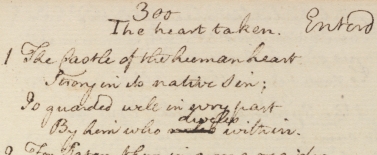 300
The heart taken. Enterd
1 The Castle of the human heart
Strong in its native Sin;
Is guarded well in every part
By him who dwells within.
2 For Satan